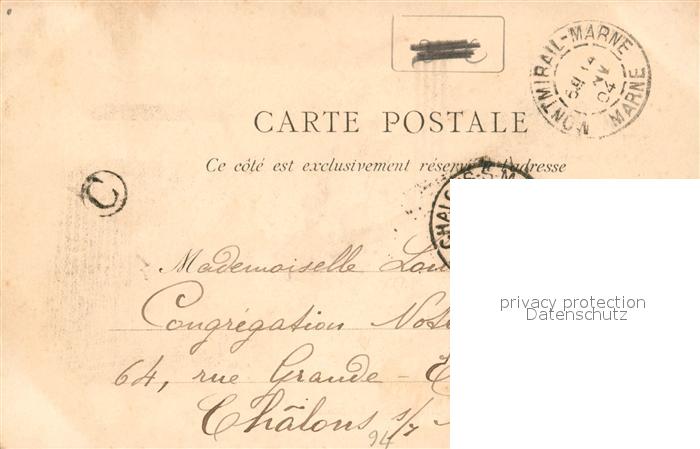 CARTE POSTALE
Ce côté est exclusivement réservé à l'adresse
MONTMIRAIL-MARNE
MARNE
C
CHALO
S-M
Mademoiselle
Congrégation
64, rue Grande-E
Châlons s/
94
privacy protection
Datenschutz